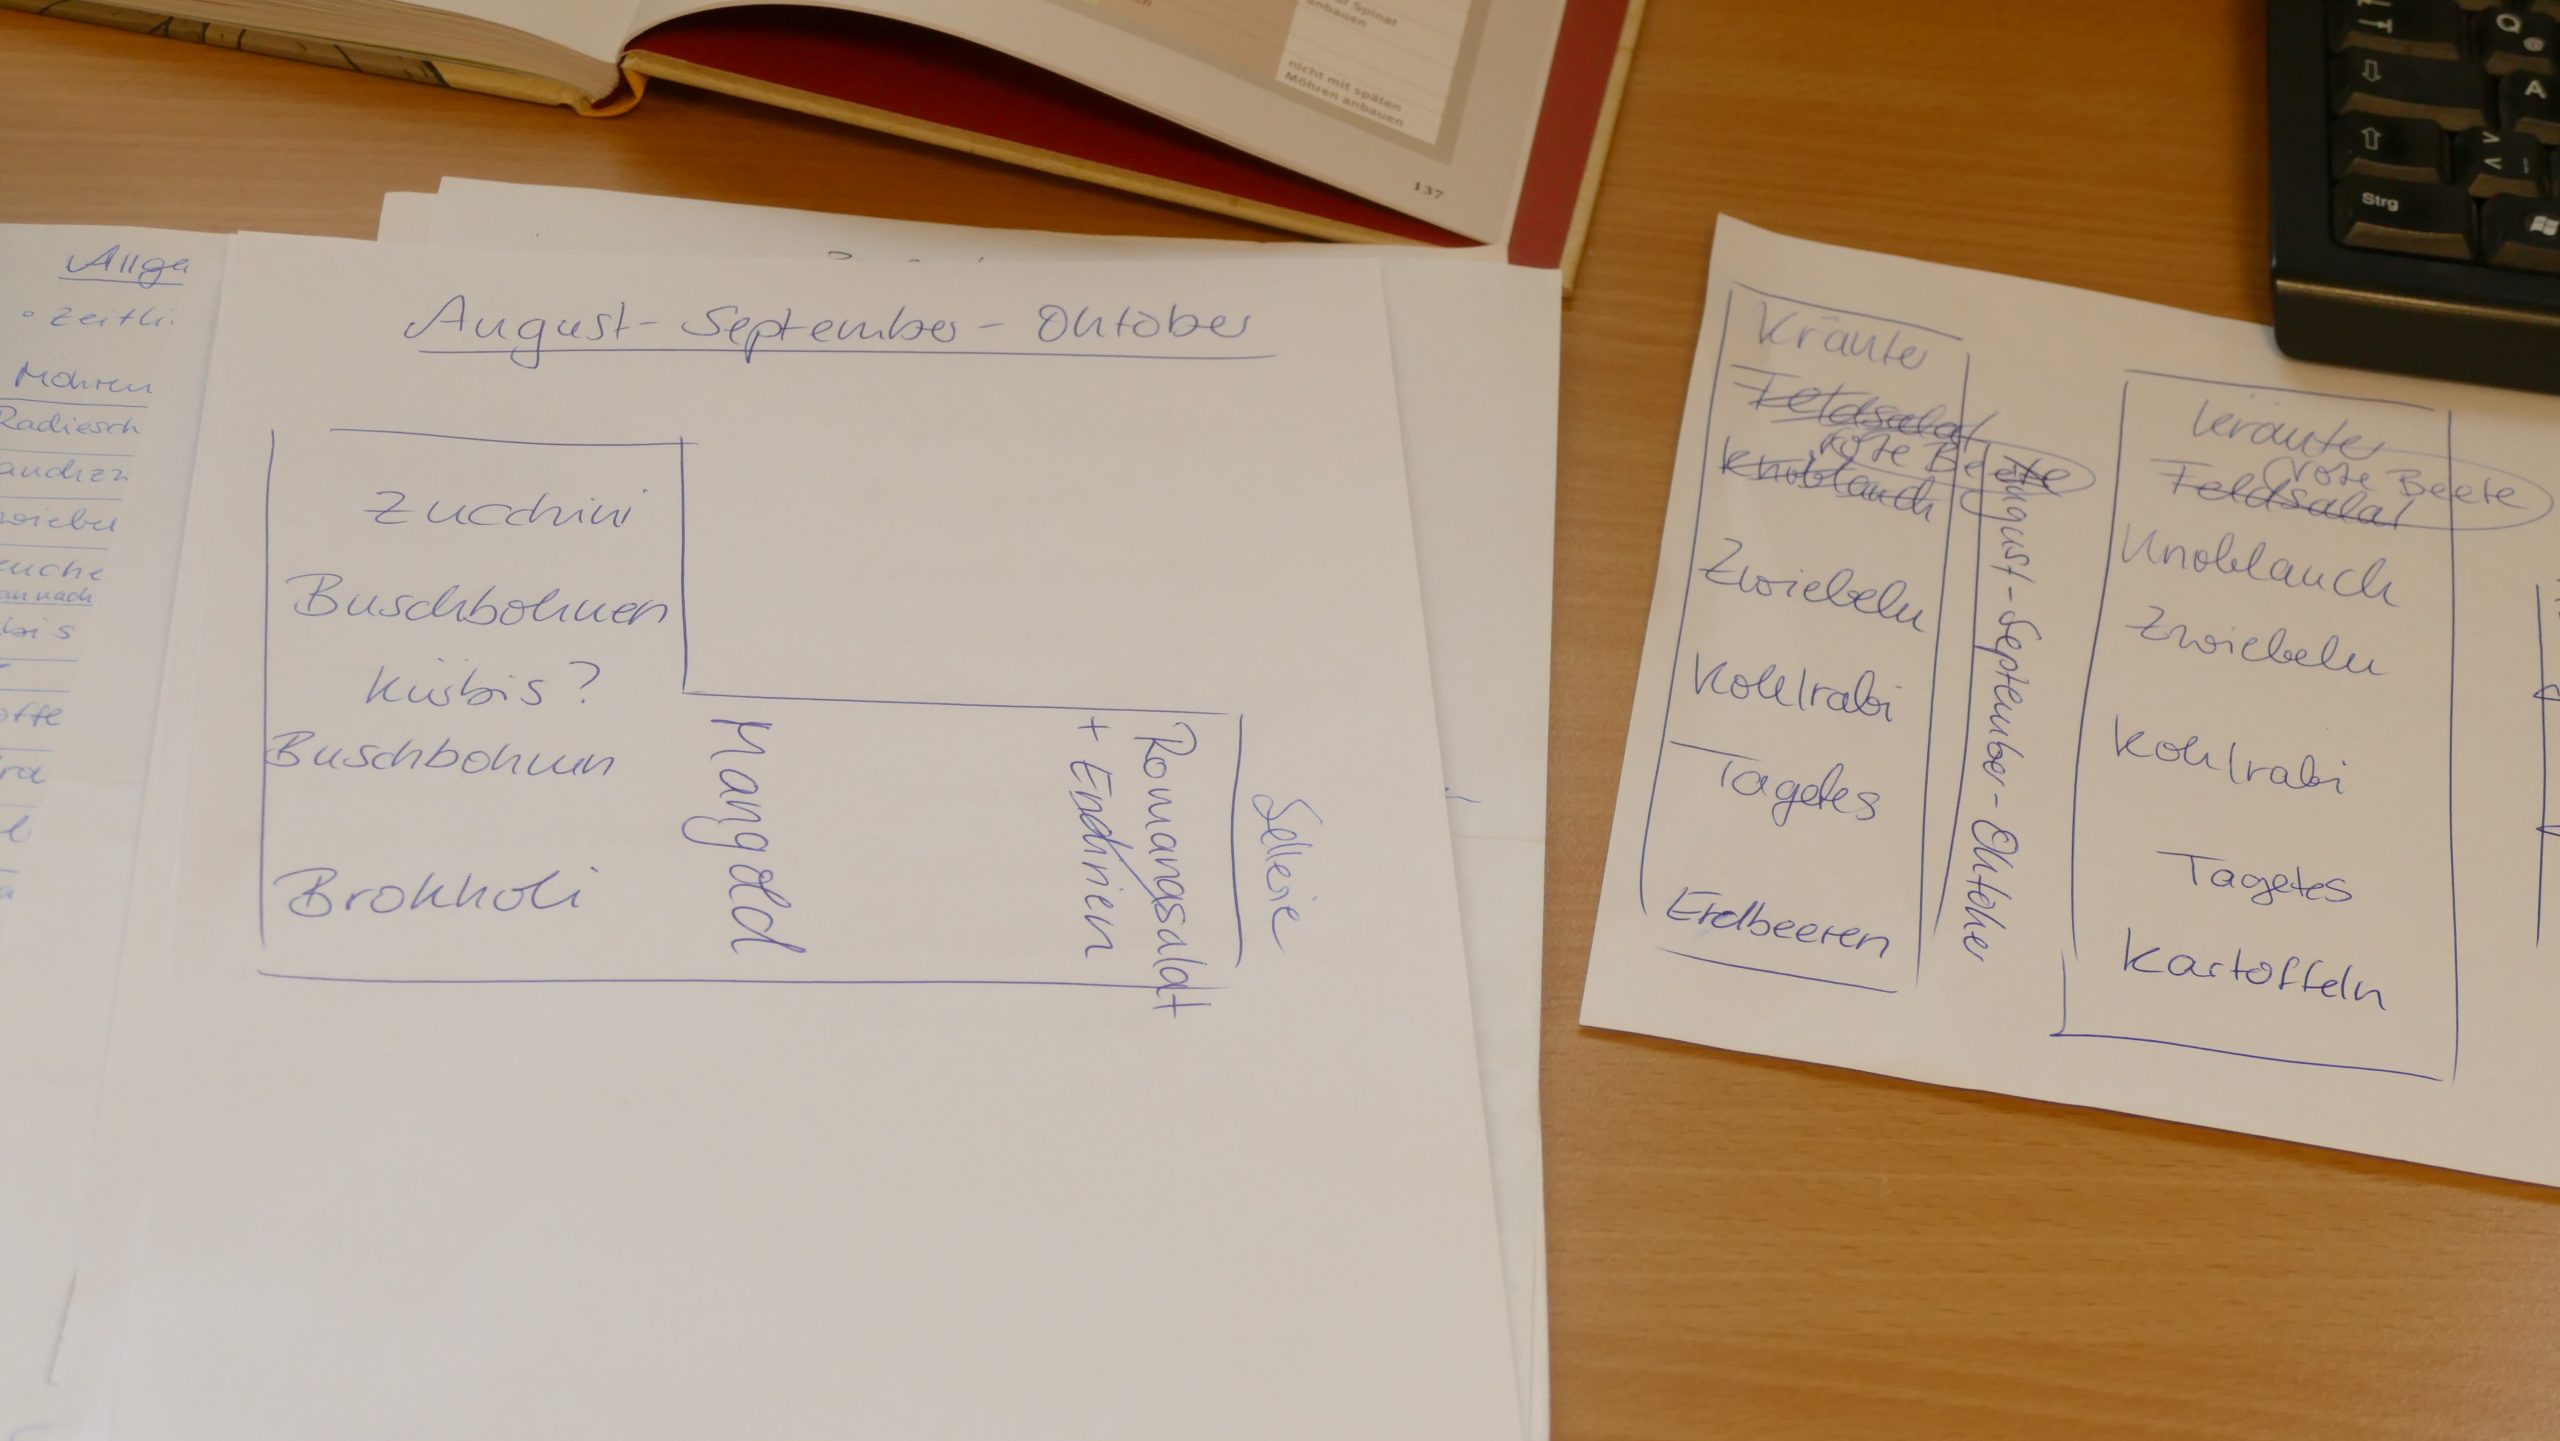 Spinat
anbauen
nicht mit späten
Möhren anbauen
137
Q
A
Strg
Allga
• zeitli
Möhren
Radiesch
August - September - Oktober
Zucchini
Buschbohnen
Kürbis?
Buschbohnen
Brokkoli
Mangold
+ Endivien
Romanasalat
Sellerie
Kräuter
Feldsalat
rote Beete
Knoblauch
Zwiebeln
Kohlrabi
Tagetes
Erdbeeren
August - September - Oktober
Kräuter
rote Beete
Feldsalat
Knoblauch
Zwiebeln
Kohlrabi
Tagetes
Kartoffeln